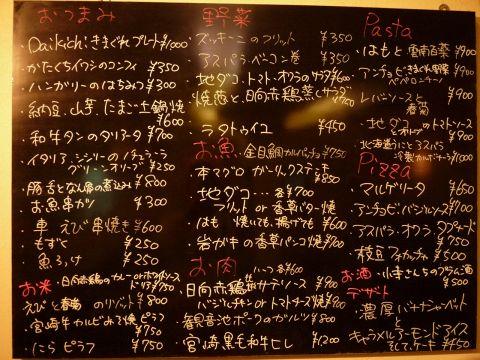 おつまみ
・Daikichi きまぐれプレート ¥1000
・かたくちイワシのコンフィ ¥350
・ハンガリーのはちみつ ¥300
・納豆、山芋、たまご土鍋焼
¥600
・和牛タンのタリアータ ¥700
・イタリア、シシリーのナチュラル
グリーンオリーブ ¥250
・豚舌となん骨の煮込み ¥800
・お魚串カツ ¥300
・車えび串焼き ¥600
・もずく ¥250
・魚ろっけ ¥250
お米
・日向赤鶏のカレー or ホワイトソース
ドリア ¥750
・えびと春菊のリゾット ¥800
・宮崎牛カルビみそ焼ピラフ
¥750
・にらピラフ ¥750
野菜
・ズッキーニのフリット ¥350
・アスパラ、ベーコン巻 ¥350
・地ダコ、トマト、オクラのサラダ ¥600
・焼茄と、日向赤鶏蒸しサラダ
¥700
・ラタトゥイユ ¥450
お魚
・金目鯛カルパッチョ ¥750
・本マグロ ガーリックステーキ
¥850
・地ダコ 各¥700
フリット or 香草バター焼
・はも 焼いても、揚げても ¥600
・岩ガキの香草パン粉焼 ¥900
お肉
ハーフ 各¥600
・日向赤鶏 ソテー ¥900
バジルチキン or トマトチーズ焼
・観音池ポークのガルツ ¥800
・宮崎黒毛和牛ヒレ ¥1200
Pasta
・はもと ¥900
・アンチョビときまぐれ野菜
ペペロンチーノ ¥900
・レバーソースと
春菊 ¥900
・地ダコのトマトソース
¥900
・北海道うにと
冷製カルボナーラ ¥1000
Pizza
・マルゲリータ ¥650
・アンチョビ・バジルソース ¥700
・アスパラ、オクラ、タプナード
¥750
・枝豆フォカッチャ ¥500
お酒
・小寺さんちのプラム酒
¥500
デザート
・濃厚バナナシャーベット
と
キャラメルアーモンドアイス
そして、ケーキ ¥450